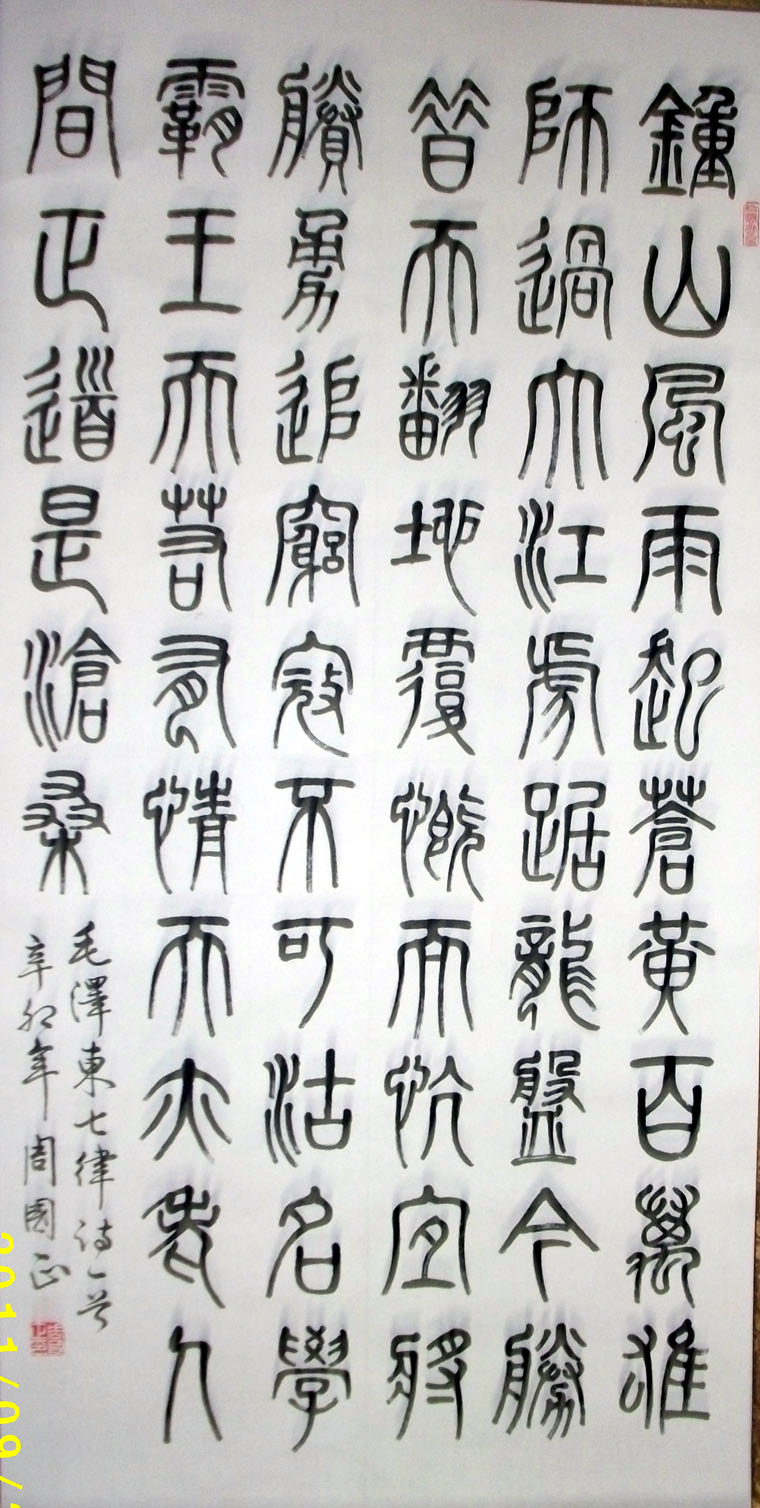 鍾山風雨起蒼黃百萬雄
師過大江虎踞龍盤今勝
昔天翻地覆慨而忼宜將
賸勇追窮寇不可沽名學
霸王天若有情天亦老人
間正道是滄桑
毛澤東七律詩一首
辛卯年周國正
2011/09/